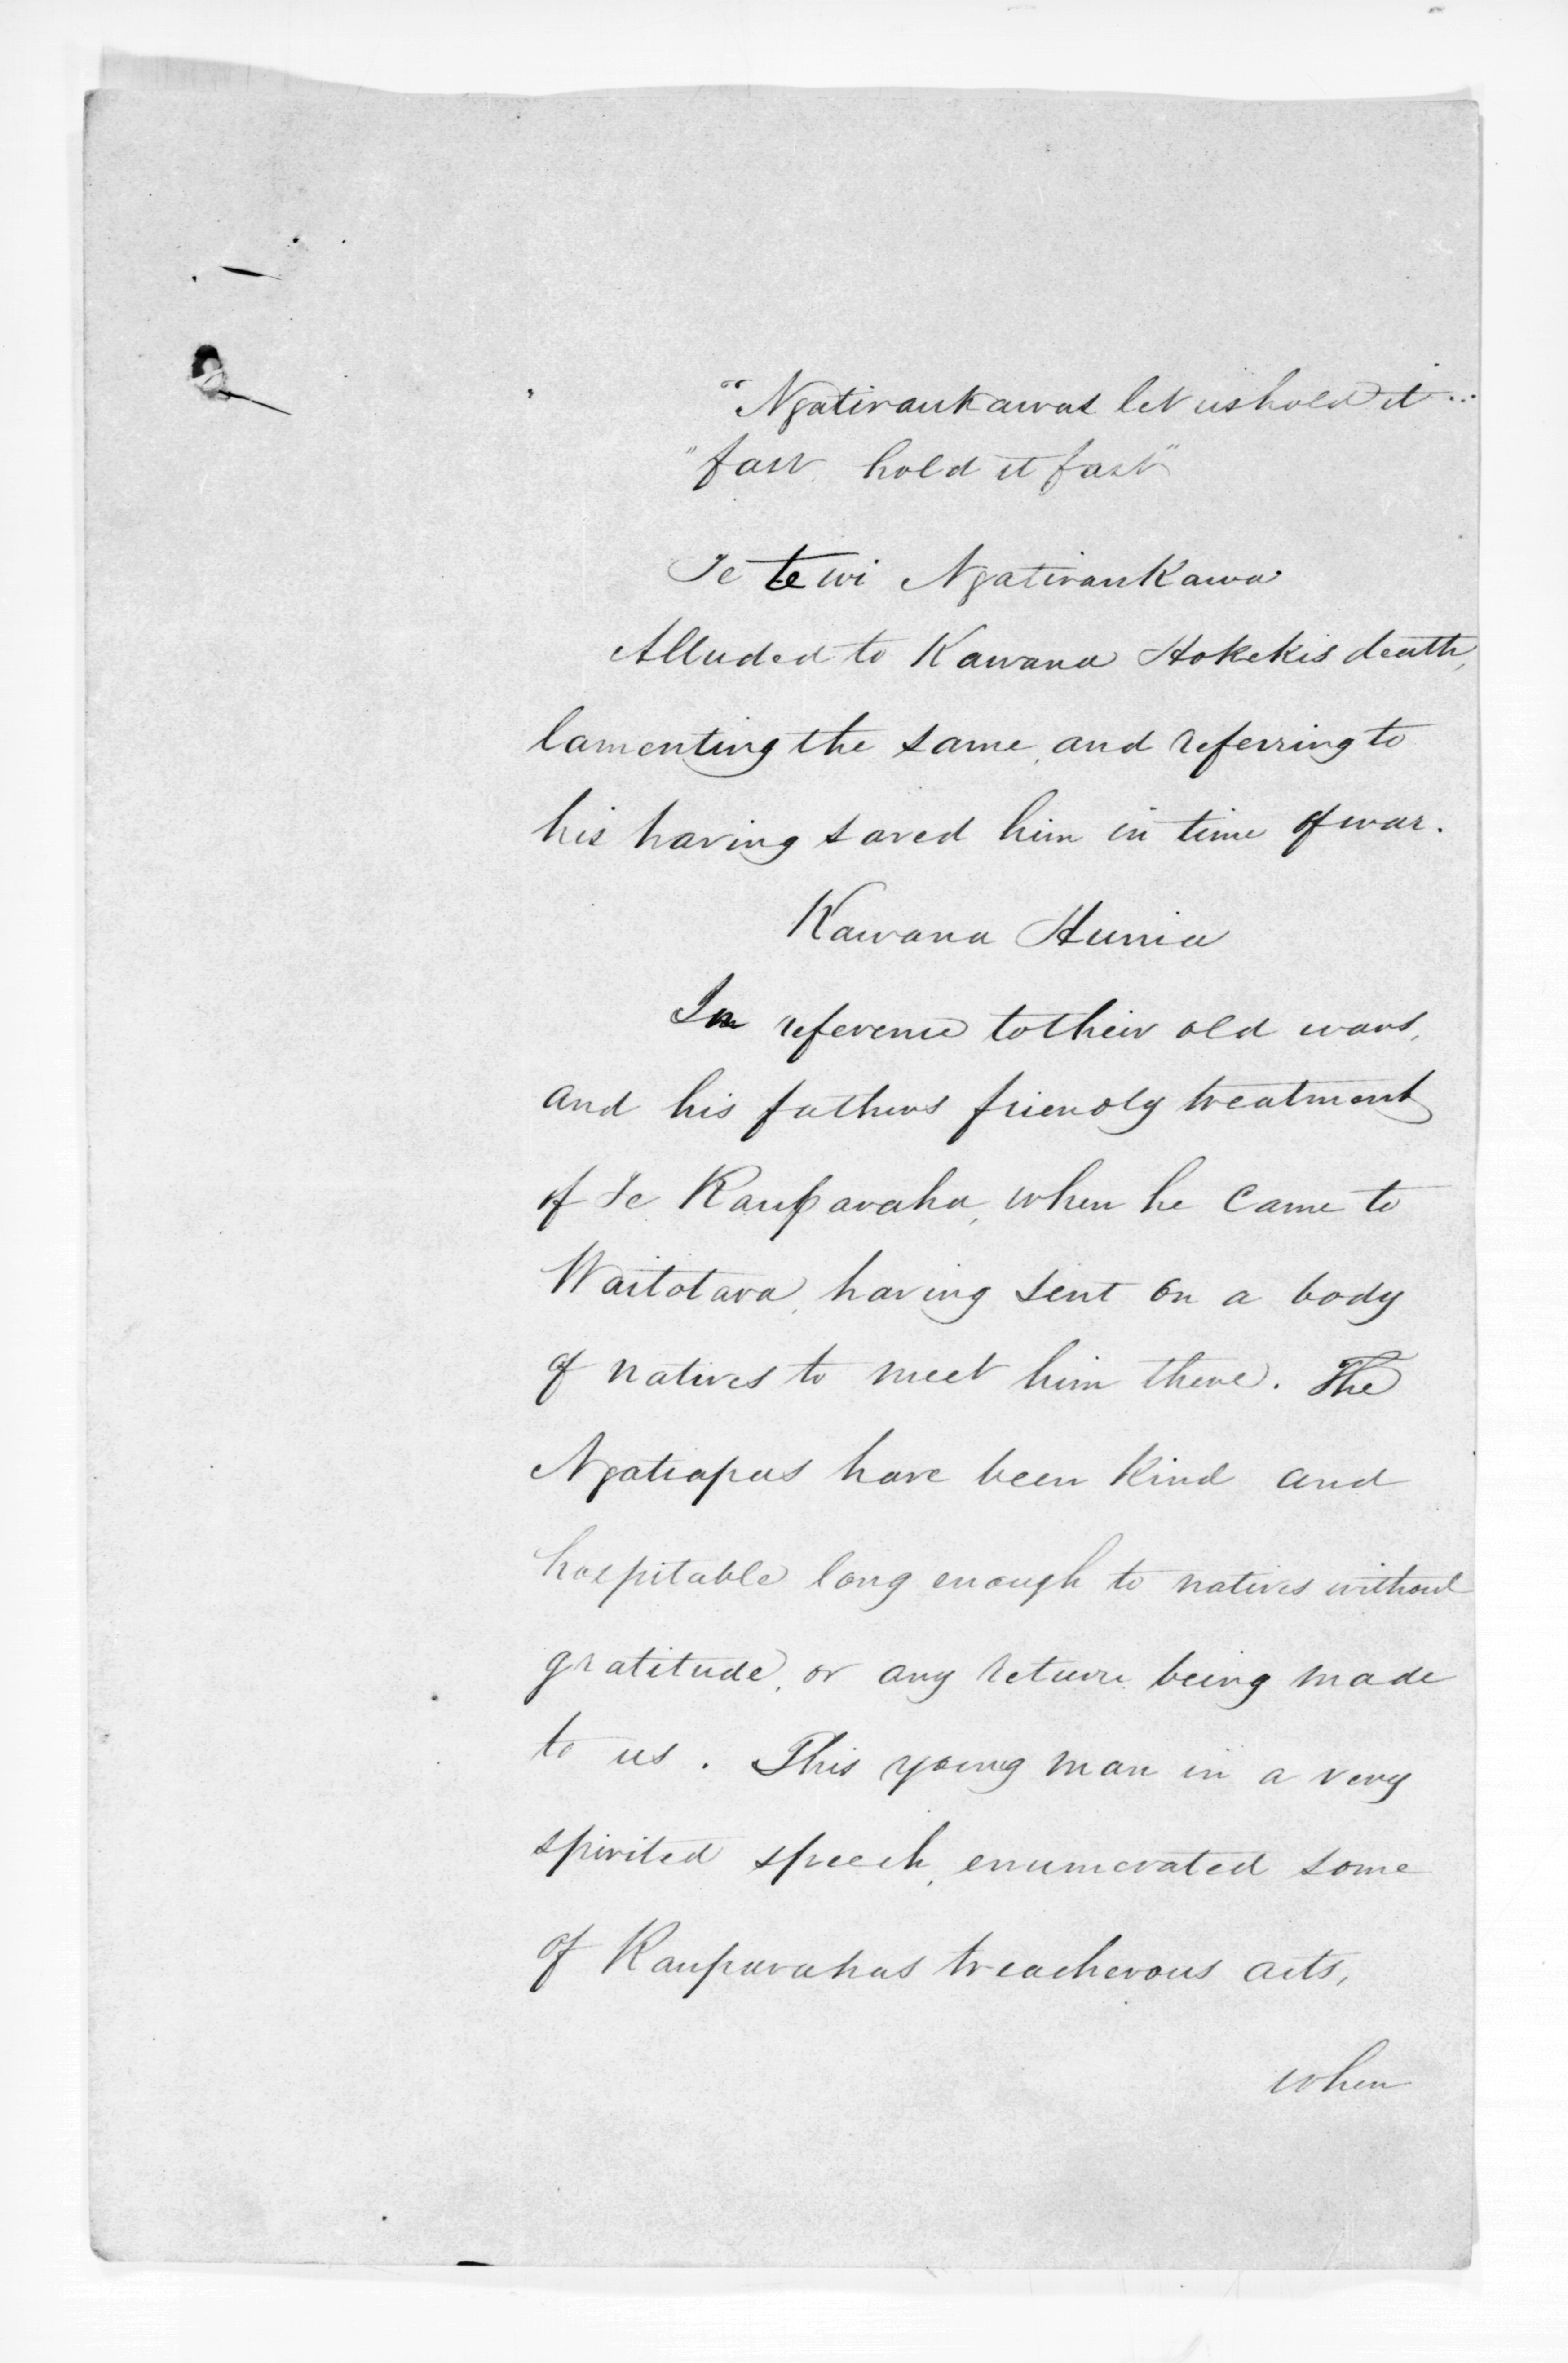 "Ngatiraukawas let us hold it..
"fast hold it fast"
Te te wi Ngatiraukawa
Alluded to Kawana Hokekis death,
lamenting the same, and referring to
his having saved him in time of war.
Kawana Hunia
In reference to their old wars,
and his fathers friendly treatment
of Te Rauparaha, when he came to
Waitotara, having sent on a body
of natives to meet him there. The
Ngatiapas have been kind and
hospitable long enough to natives without
gratitude, or any return being made
to us. This young man in a very
spirited speech, enumerated some
of Rauparahas treacherous acts,
when